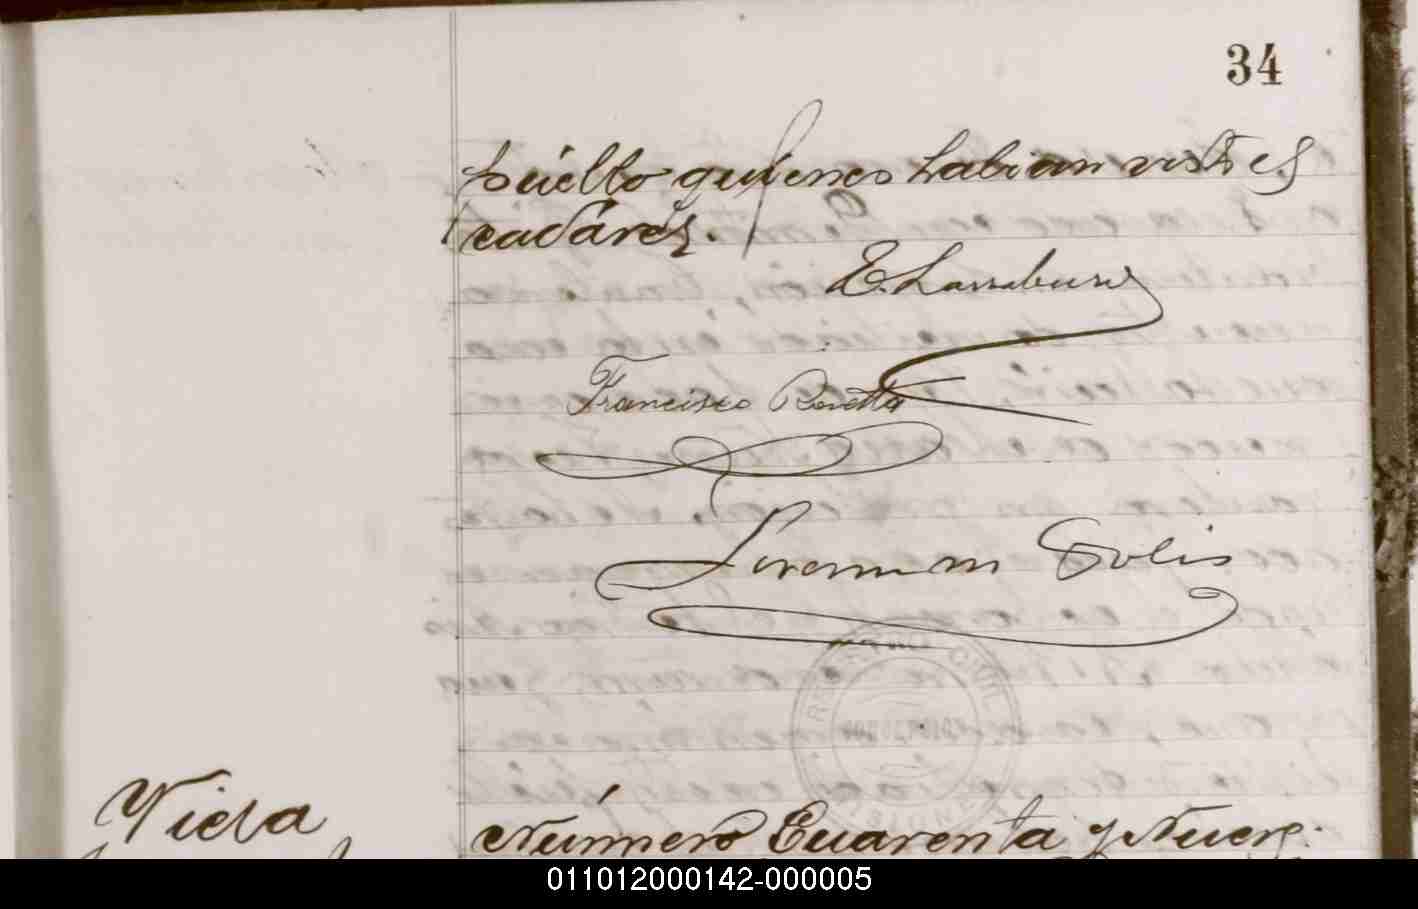 34
quienes habian visto el
cadáver.
E. Larraburu
Francisco Rovetta
Solis
REGISTRO CIVIL
Vieda
Número Cuarenta y Nueve.
011012000142-000005